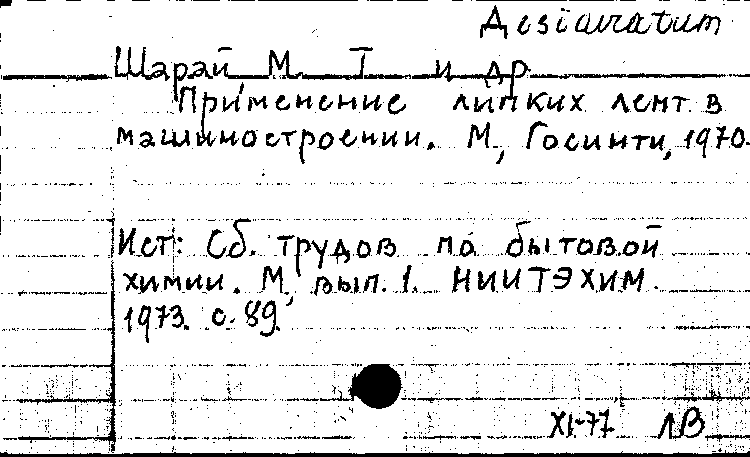 Desideratum
Шарай М. Т. и др
Применение липких лент в
машиностроении. М., Госинти, 1970.
Ист: Сб. трудов по бытовой
химии. М, вып. 1. НИИТЭХИМ.
1973. с. 89.
XI-77 ЛВ